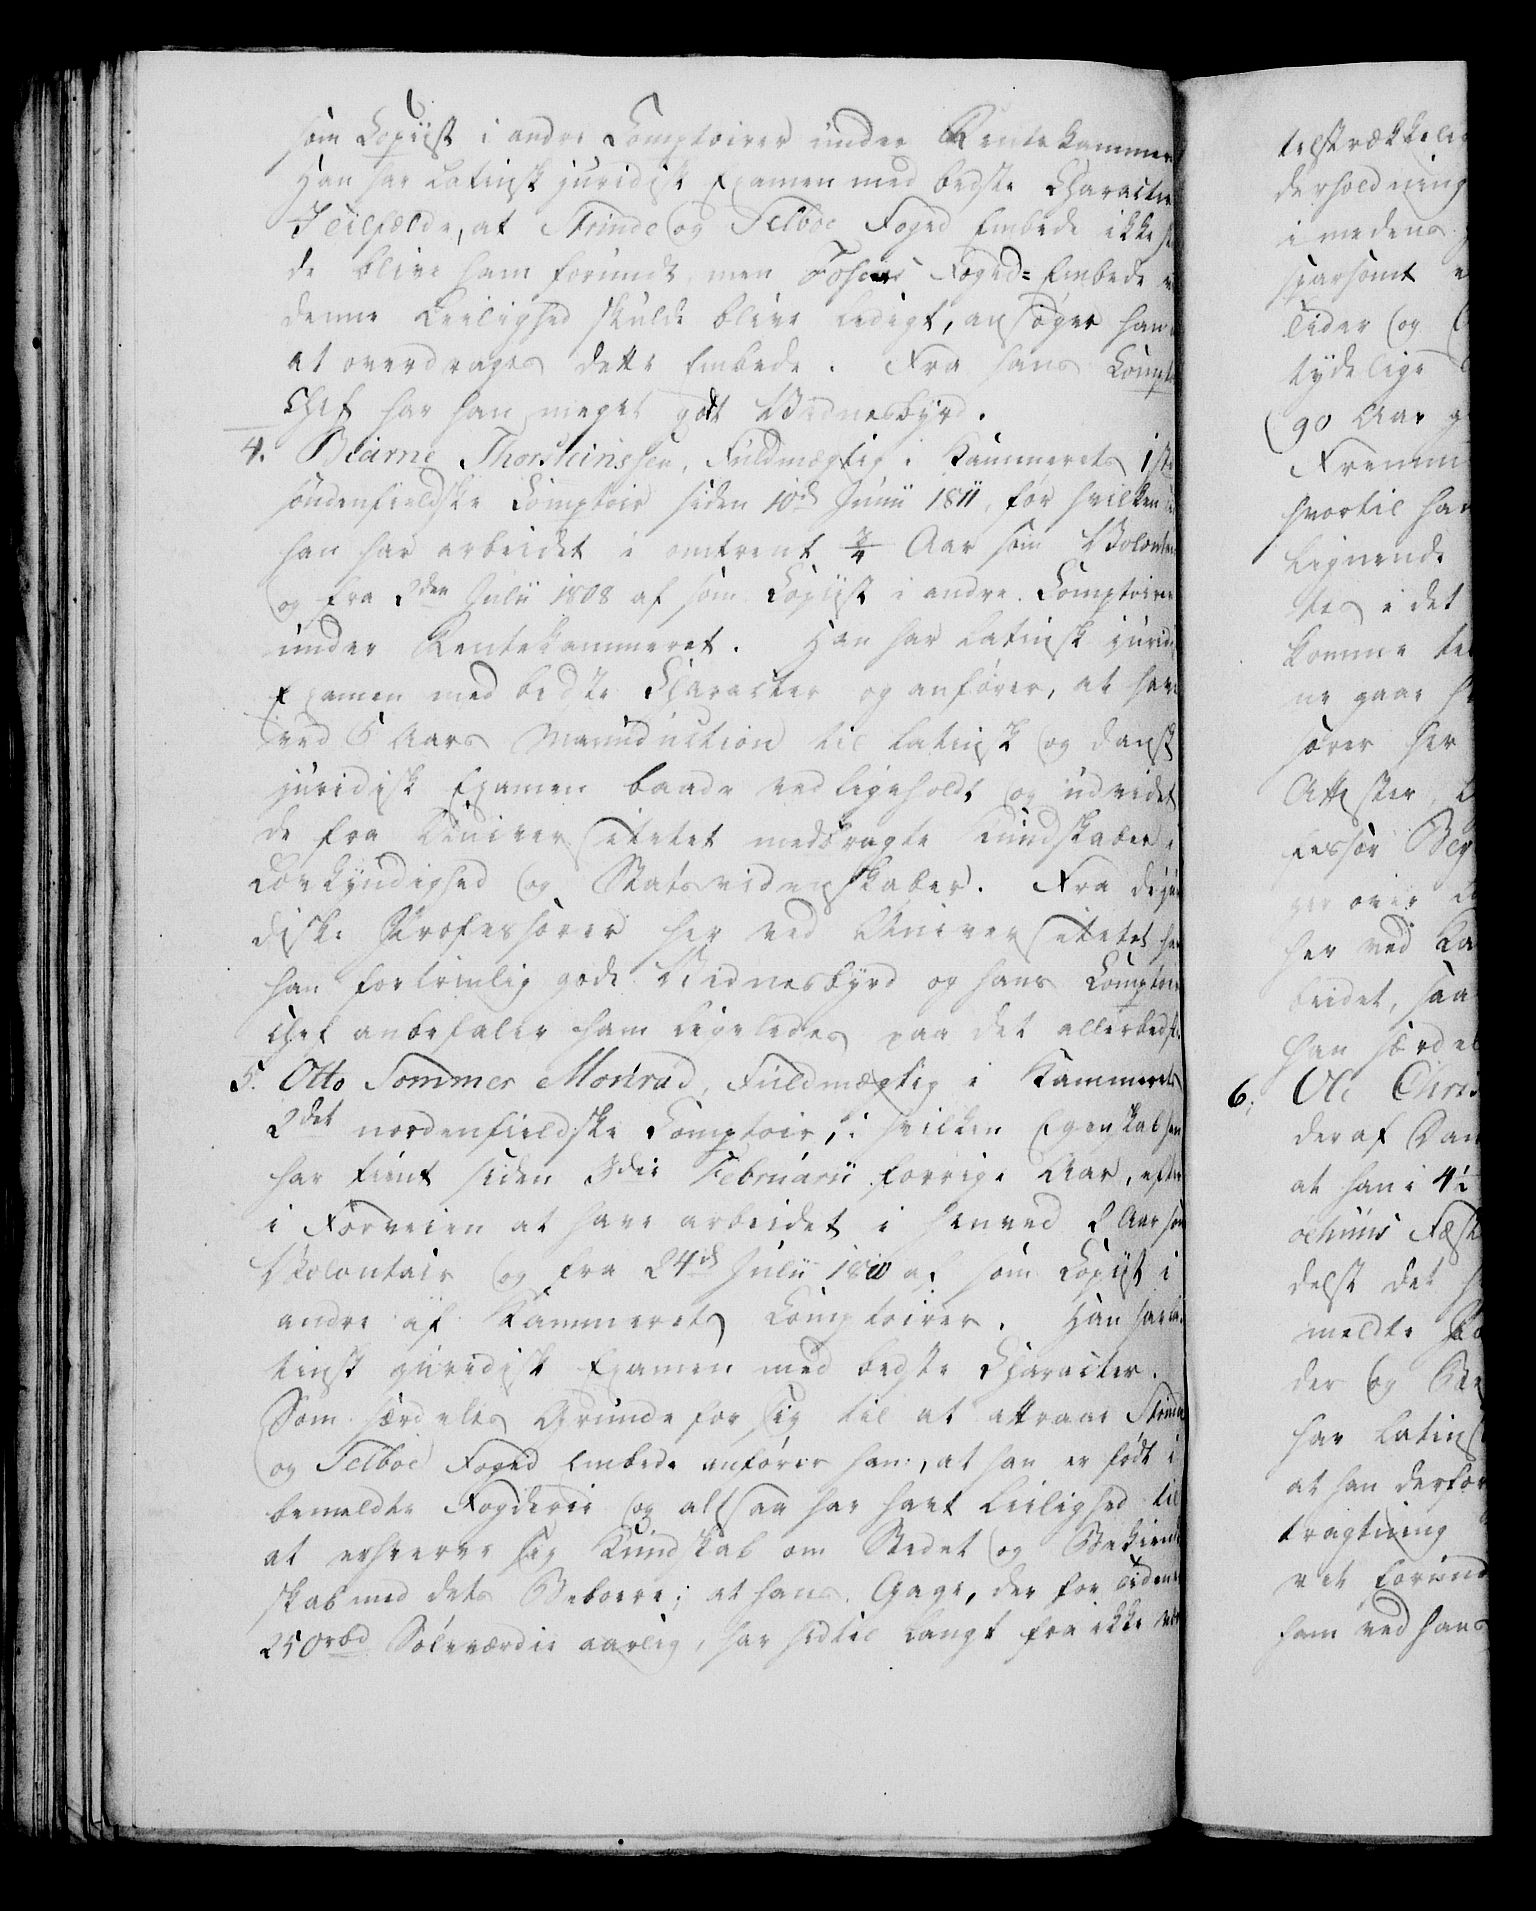 som Copiist i andre Comptoirer under Rentekammer
Han har Latinsk juridisk Examen med bedste Character
I Tilfælde, at Strinde og Selboe Foged Embede ikke
de blive ham forundt, men Fosens Foged-Embede
denne Leilighed skulde blive ledigt, ansøger han
at overdrages dette Embede. Fra hans Compt
Chef har han meget godt Vidnesbyrd.
4. Biarne Thorsteinssen, Fuldmægtig i Kammerets 1ste
søndenfieldske Comptoir siden 10de Junii 1811, før hvilken
han har arbeidet i omtrent 3/4 Aar som Volontair
og fra 2den Julii 1808 af som Copiist i andre Comptoirer
under Rentekammeret. Han har latinsk jurid
Examen med bedste Character og anfører, at have
ved 5 Aars Manuduction til latinsk og dansk
juridisk Examen baade vedligeholdt og udvidet
de fra Universitetet medbragte Kundskaber i
Lovkyndighed og Statsvidenskaber. Fra de ju
diske Professorer her ved Universitetet har
han fortrinlig gode Vidnesbyrd og hans Comptoir
Chef anbefaler ham ligeledes paa det allerbedste
5. Otto Sommer Monrad, Fuldmægtig i Kammerets
2det nordenfieldske Comptoir, i hvilken Egenskab han
har tient siden 3die Februarii forrige Aar, efter
i Forveien at have arbeidet i henved 2 Aar som
Volontair og fra 24de Julii 1810 af som Copiist i
andre af Kammerets Comptoirer. Han har la
tinsk juridisk Examen med bedste Character.
Som særdeles Grunde for sig til at attraae Strinde
og Selboe Foged Embede anfører han, at han er født i
bemeldte Fogderie og altsaa har havt Leilighed til
at erhverve sig Kundskab om Stedet og Bekiendt
skab med dets Beboere; at hans Gage, der for Tiden
250 rbd Sølvværdie aarlig, har hidtil langt fra ikke
telstrækkelig
derholdning
imedens
sparsomt
Tider og
tydelige
90 Aar
Fremm
hvortil han
lignende
tes i det
komme
ne gaar
sører her
Attester,
fessor
ger over
her ved
beidet, saa
han særdel
6. Ole Chris
deraf Dan
at han i 4 1/2
delst det
meldte
der og
har latinsk
at han derfor
tragtning
vet forund
ham ved hans